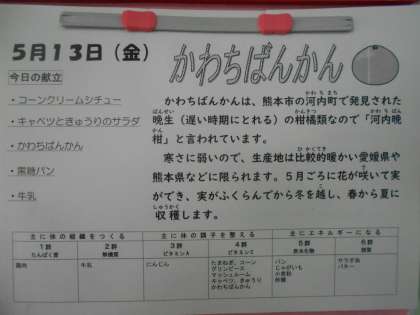 5月13日（金）
かわちばんかん
今日の献立
・コーンクリームシチュー
・キャベツときゅうりのサラダ
・かわちばんかん
・黒糖パン
・牛乳
かわちばんかんは、熊本市の河内町で発見された
晩生（遅い時期にとれる）の柑橘類なので「河内晩
柑」と言われています。
寒さに弱いので、生産地は比較的暖かい愛媛県や
熊本県などに限られます。５月ごろに花が咲いて実
ができ、実がふくらんでから冬を越し、春から夏に
収穫します。
主に体の組織をつくる 主に体の調子を整える 主にエネルギーになる
1群 2群 3群 4群 5群 6群
たんぱく質 無機質 ビタミンA ビタミンC 炭水化物 脂質
鶏肉 牛乳 にんじん たまねぎ、コーン パン サラダ油
グリンピース じゃがいも バター
マッシュルーム 小麦粉
キャベツ、きゅうり 砂糖
かわちばんかん